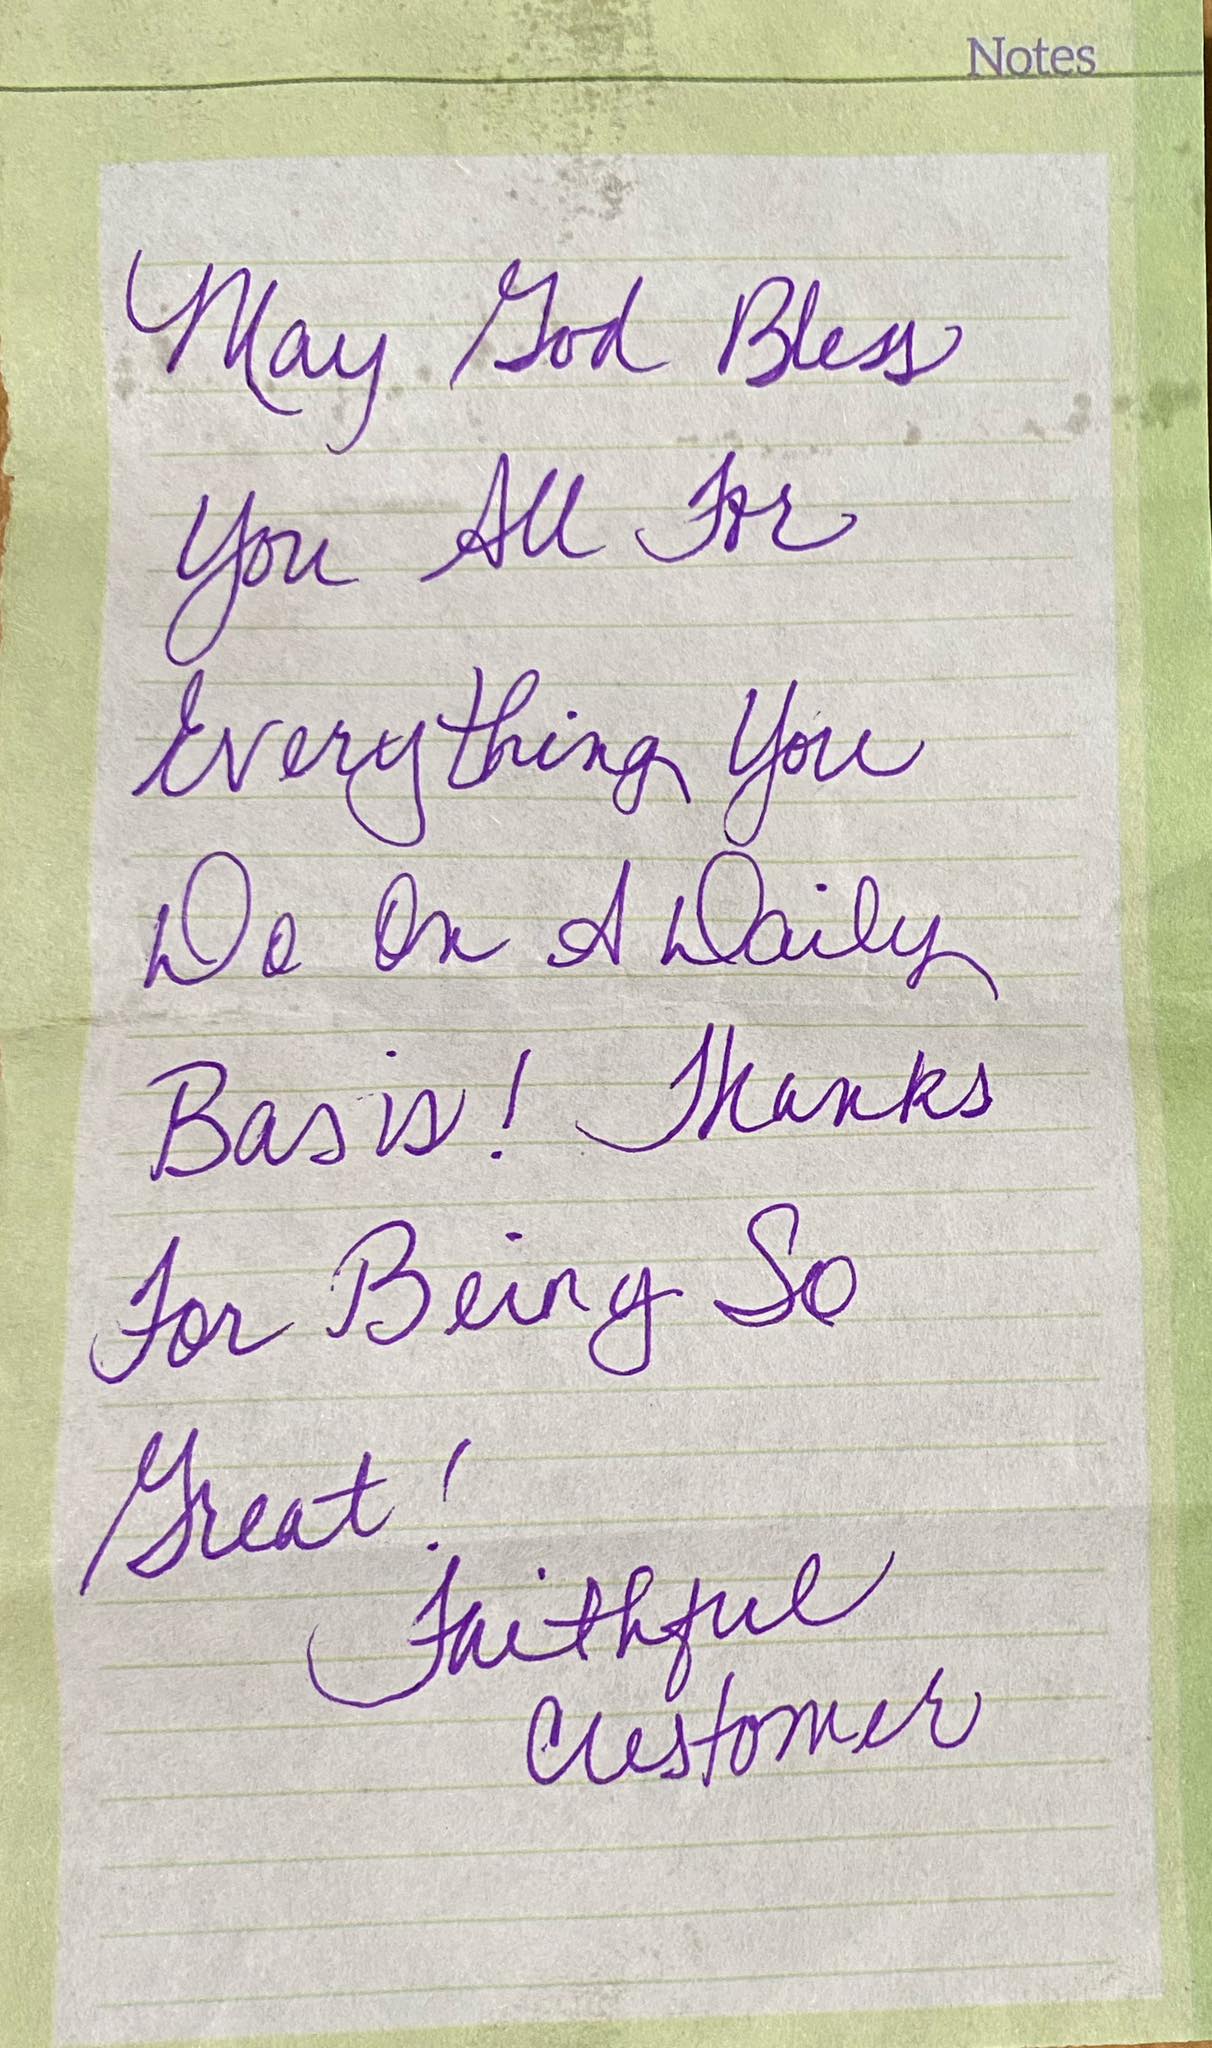 Notes
May God Bless
You All For
Everything You
Do On A Daily
Basis! Thanks
For Being So
Great!
Faithful
Customer